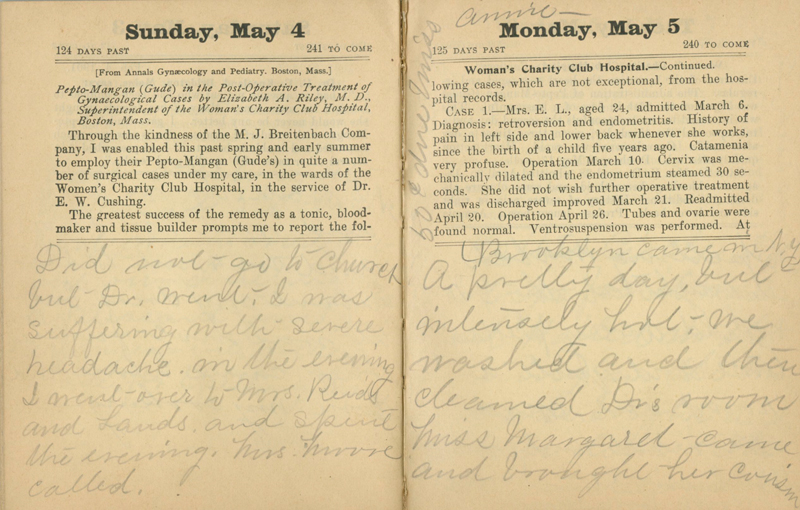 Sunday, May 4
124 DAYS PAST 241 TO COME
[From Annals Gynæcology and Pediatry. Boston, Mass.]
Pepto-Mangan (Gude) in the Post-Operative Treatment of
Gynaecological Cases by Elisabeth A. Riley, M. D.,
Superintendent of the Woman's Charity Club Hospital,
Boston, Mass.
Through the kindness of the M. J. Breitenbach Com-
pany, I was enabled this past spring and early summer
to employ their Pepto-Mangan (Gude's) in quite a num-
ber of surgical cases under my care, in the wards of the
Women's Charity Club Hospital, in the service of Dr.
E. W. Cushing.
The greatest success of the remedy as a tonic, blood-
maker and tissue builder prompts me to report the fol-
Did not go to church
but Dr. went. I was
suffering with severe
headache. in the evening
I went over to Mrs. Reids
and Lauds. and spent
the evening. Mrs. Moore
called.
Annie
Monday, May 5
125 DAYS PAST 240 TO COME
Woman's Charity Club Hospital.—Continued.
lowing cases, which are not exceptional, from the hos-
pital records.
CASE 1.—Mrs. E. L., aged 24, admitted March 6.
Diagnosis: retroversion and endometritis. History of
pain in left side and lower back whenever she works,
since the birth of a child five years ago. Catamenia
very profuse. Operation March 10. Cervix was me-
chanically dilated and the endometrium steamed 30 se-
conds. She did not wish further operative treatment
and was discharged improved March 21. Readmitted
April 20. Operation April 26. Tubes and ovarie were
found normal. Ventrosuspension was performed. At
Brooklyn came N.Y.
A pretty day, but
intensely hot, we
washed and then
cleaned Dr's room
Miss Margaret came
and brought her cousin
50¢ Miss